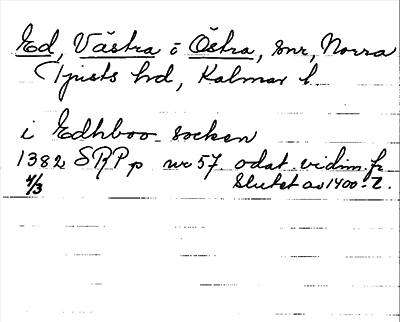 Ed, Västra o Östra, snr, Norra
Tjusts hd, Kalmar l
i Edhboo socken
1382 SRPp nr 57. odat. vidim. fr
4/3 Slutet av 1400-t.